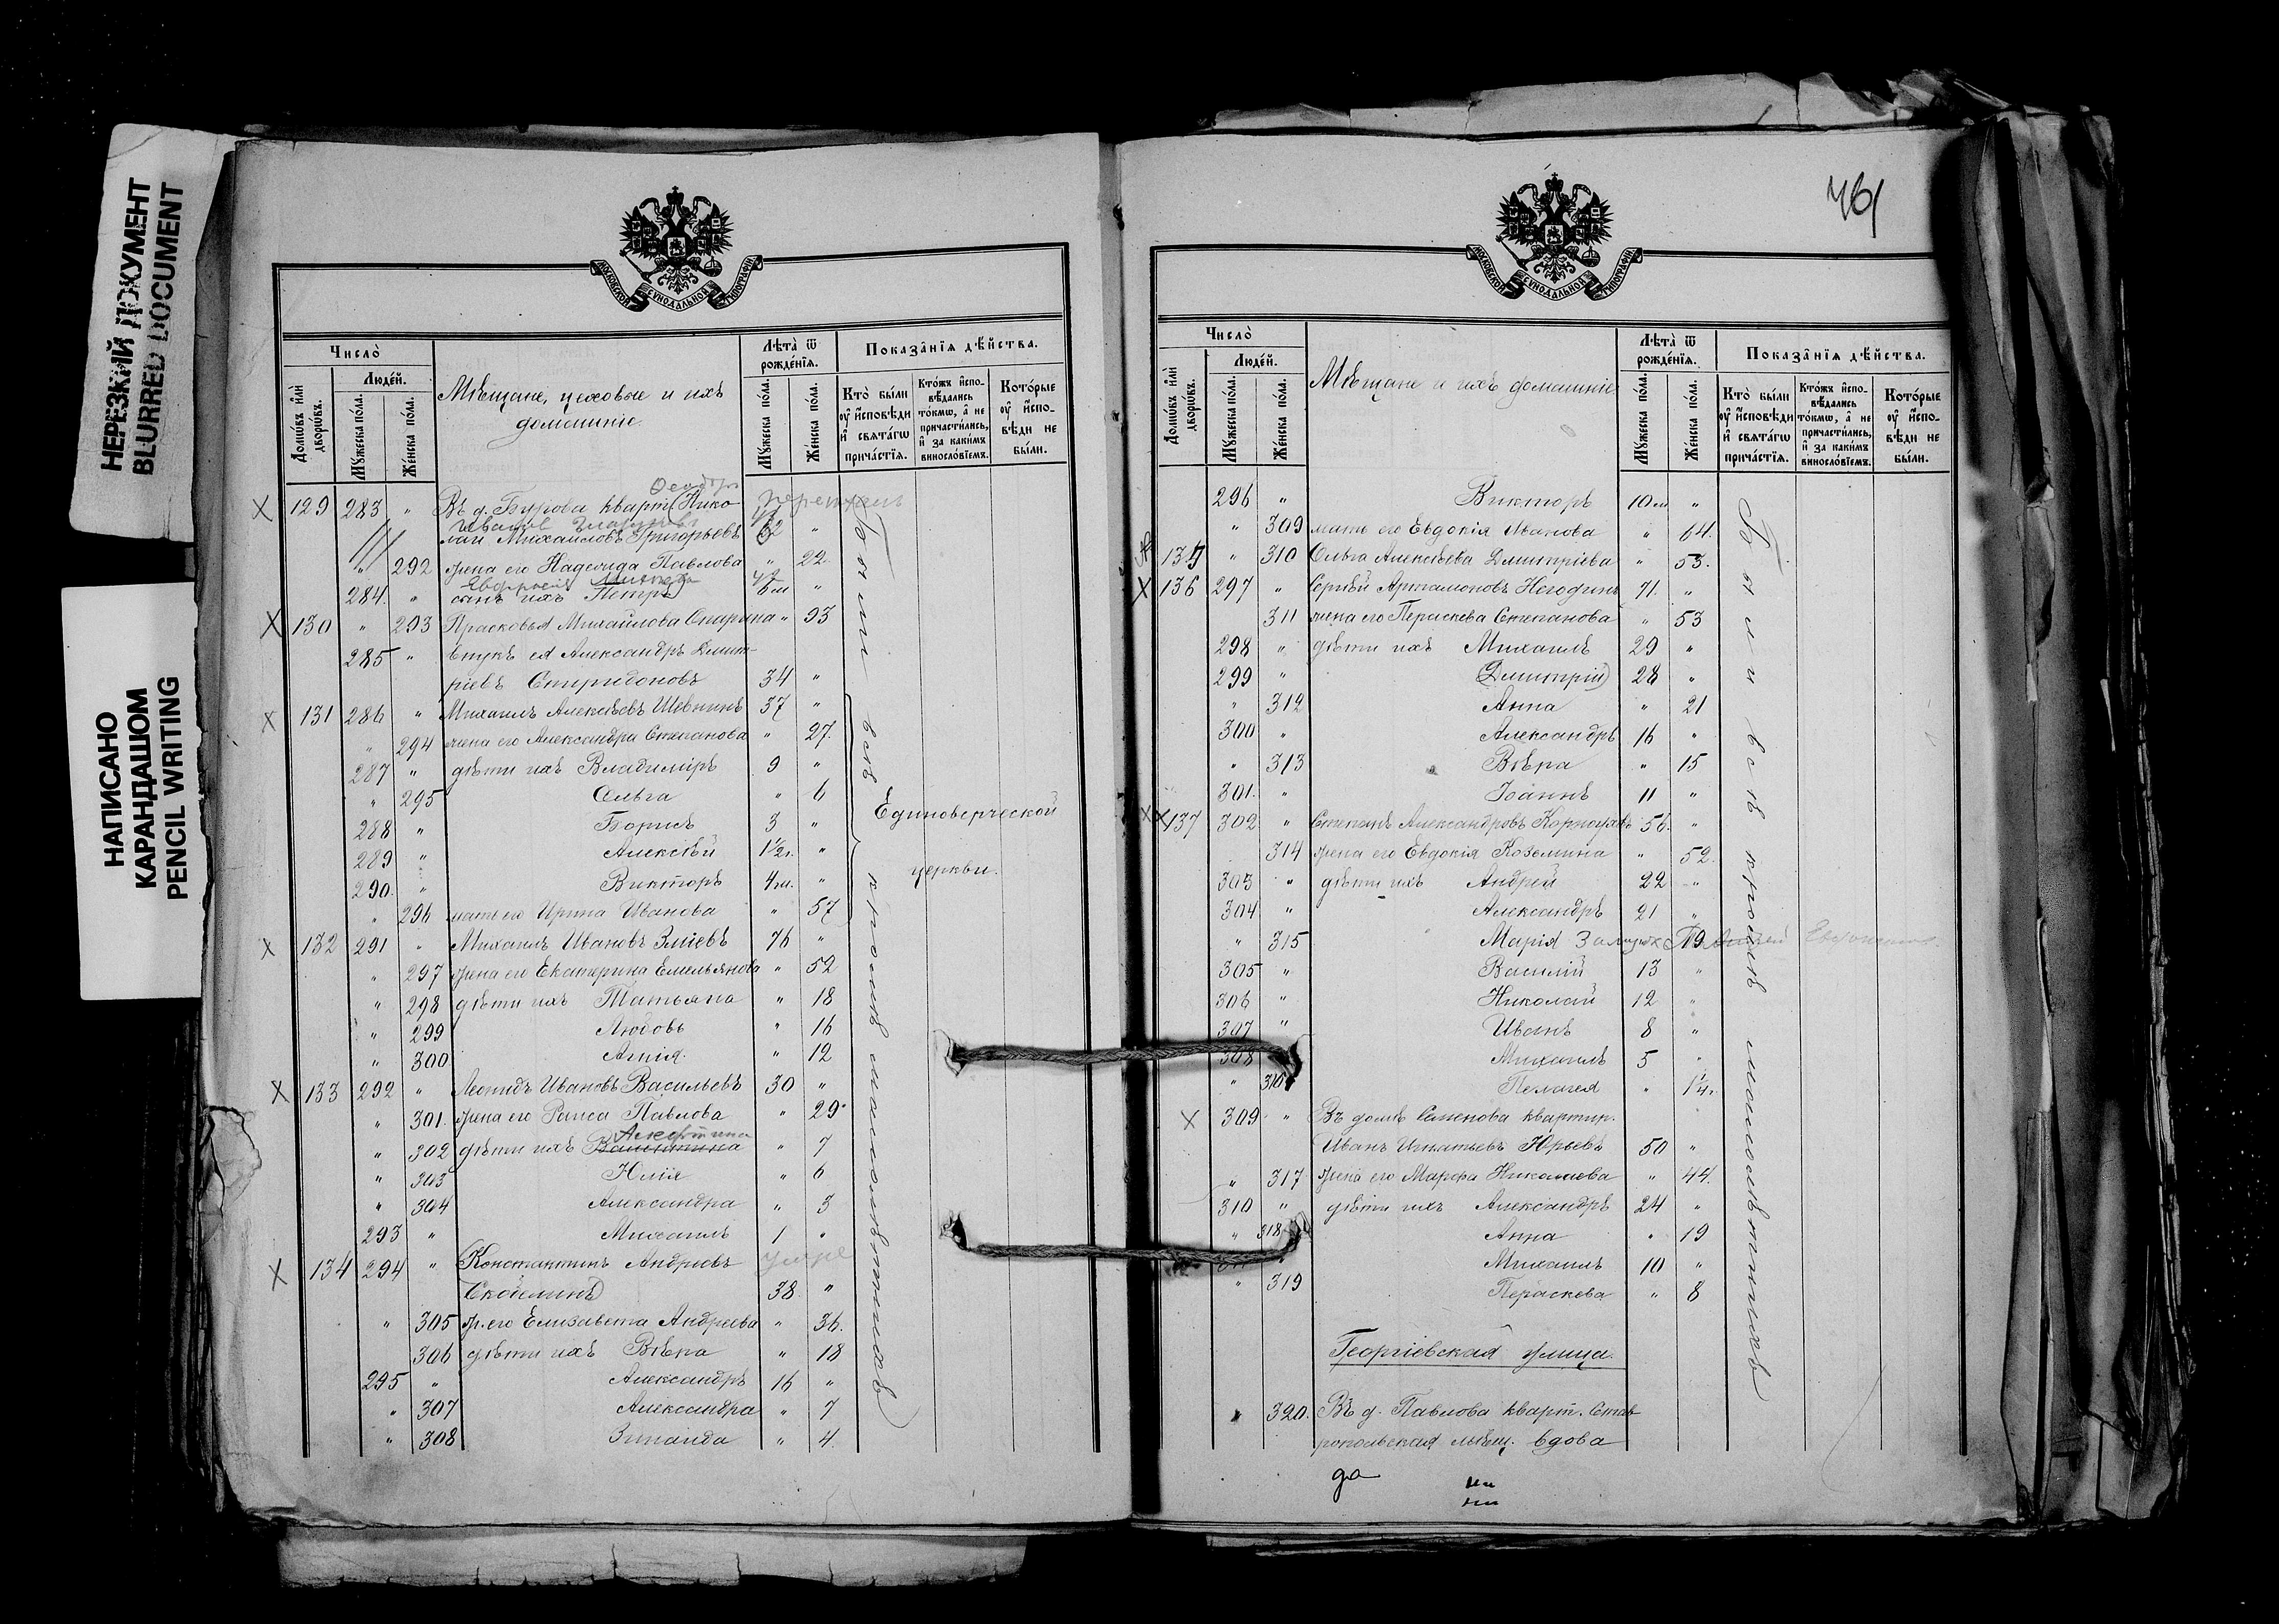 НЕРЕЗКИЙ ДОКУМЕНТ
BLURRED DOCUMENT
НАПИСАНО
КАРАНДАШОМ
PENCIL WRITING
МОСКОВСКОЙ СѴНОДАЛЬНОЙ ТИПОГРАФІИ
Число̀
Люде́й.
Домѡ́въ и҆лѝ дворѡ́въ.
Мꙋ́жеска по́ла.
Же́нска по́ла.
Мѣщане, цеховые и ихъ
домашніе
Лѣта̀ ѿ рожде́нїѧ.
Мꙋ́жеска по́ла.
Же́нска по́ла.
Показа̑нїѧ дѣ́йства.
Кто̀ бы́ли ᲂу҆ и҆сповѣ́ди и҆ свѧта́гѡ прича́стїѧ.
Кто́жъ и҆сповѣ́дались то́кмѡ, а҆ не причасти́лись, и҆ за каки́мъ винослові́емъ.
Кото́рые ᲂу҆ и҆спо́вѣди не бы́ли.
Ѳеодоръ
X 129 283 " Въ д. Бурова кварт. (Нико-
лай Михаиловъ Григорьевъ 62 "
" 292 жена его Надежда Павлова " 22
284 " сынъ ихъ Петръ) "
X 130 " 293 Прасковья Михайлова Спарина " 93
285 " внукъ ея Александръ Дмит-
ріевъ Спиридоновъ 34 "
X 131 286 " Михаилъ Алексѣевъ Шевнинъ 37 "
" 294 жена его Александра Степанова " 27
287 " дѣти ихъ Владиміръ 9 "
" 295 Ольга " 6
288 " Борисъ 3 "
289 " Алексѣй 1½ г. "
290 " Викторъ 4 м. "
" 296 мать его Ирина Иванова " 57
Единоверческой
церкви.
X 132 291 " Михаилъ Ивановъ Зміевъ 76 "
" 297 жена его Екатерина Емельянова " 52
" 298 дѣти ихъ Татьяна " 18
" 299 Любовь " 16
" 300 Агнія " 12
X 133 292 " Леонидъ Ивановъ Васильевъ 30 "
" 301 жена его Раиса Павлова " 29
" 302 дѣти ихъ Валентина " 7
" 303 Юлія " 6
" 304 Александра " 3
293 " Михаилъ 1 "
X 134 294 " Константинъ Андреевъ умре
Скобелинъ) 38 "
" 305 ж. его Елизавета Андреева " 36.
306 дѣти ихъ Вѣра " 18
295 " Александръ 16 "
" 307 Александра " 7
" 308 Зинаида " 4.
Были всѣ кромѣ малолѣтнихъ
МОСКОВСКОЙ СѴНОДАЛЬНОЙ ТИПОГРАФІИ
Число̀
Люде́й.
Домѡ́въ и҆лѝ дворѡ́въ.
Мꙋ́жеска по́ла.
Же́нска по́ла.
Мѣщане и ихъ домашніе
Лѣта̀ ѿ рожде́нїѧ.
Мꙋ́жеска по́ла.
Же́нска по́ла.
Показа̑нїѧ дѣ́йства.
Кто̀ бы́ли ᲂу҆ и҆сповѣ́ди и҆ свѧта́гѡ прича́стїѧ.
Кто́жъ и҆сповѣ́дались то́кмѡ, а҆ не причасти́лись, и҆ за каки́мъ винослові́емъ.
Кото́рые ᲂу҆ и҆спо́вѣди не бы́ли.
296 " Викторъ 10 м "
" 309 мать его Евдокія Иванова " 64.
135 " 310 Ольга Алексѣева Дмитріева " 53.
X 136 297 " Сергѣй Артамоновъ Негодинъ 71. "
311 жена его Пераскева Степанова " 53
298 " дѣти ихъ Михаилъ 29 "
299 " Димитрій) 28 "
" 312 Анна " 21
300 " Александръ 16 "
" 313 Вѣра " 15
301 " Іоаннъ 11 "
X X 137 302 " Степанъ Александровъ 56. "
314 жена его Евдокія Козьмина " 52.
303 " дѣти ихъ Андрей 22 "
304 " Александръ 21 "
" 315 Марія 19
305 " Василій 13 "
306 " Николай 12 "
307 " Иванъ 8 "
308 Михаилъ 5 "
" 316 Пелагея " 1¼ г.
X 309 " Въ домѣ Семенова квартир.
Иванъ Игнатьевъ Юрьевъ 50 "
" 317 жена его Марфа Николаева " 44.
310 " дѣти ихъ Александръ 24 "
" 318 Анна " 19
Михаилъ 10 "
" 319 Пераскева " 8
Георгіевская улица.
" 320. Въ д. Павлова кварт. Став
ропольская мѣщ. вдова
да
Были всѣ кромѣ малолѣтнихъ